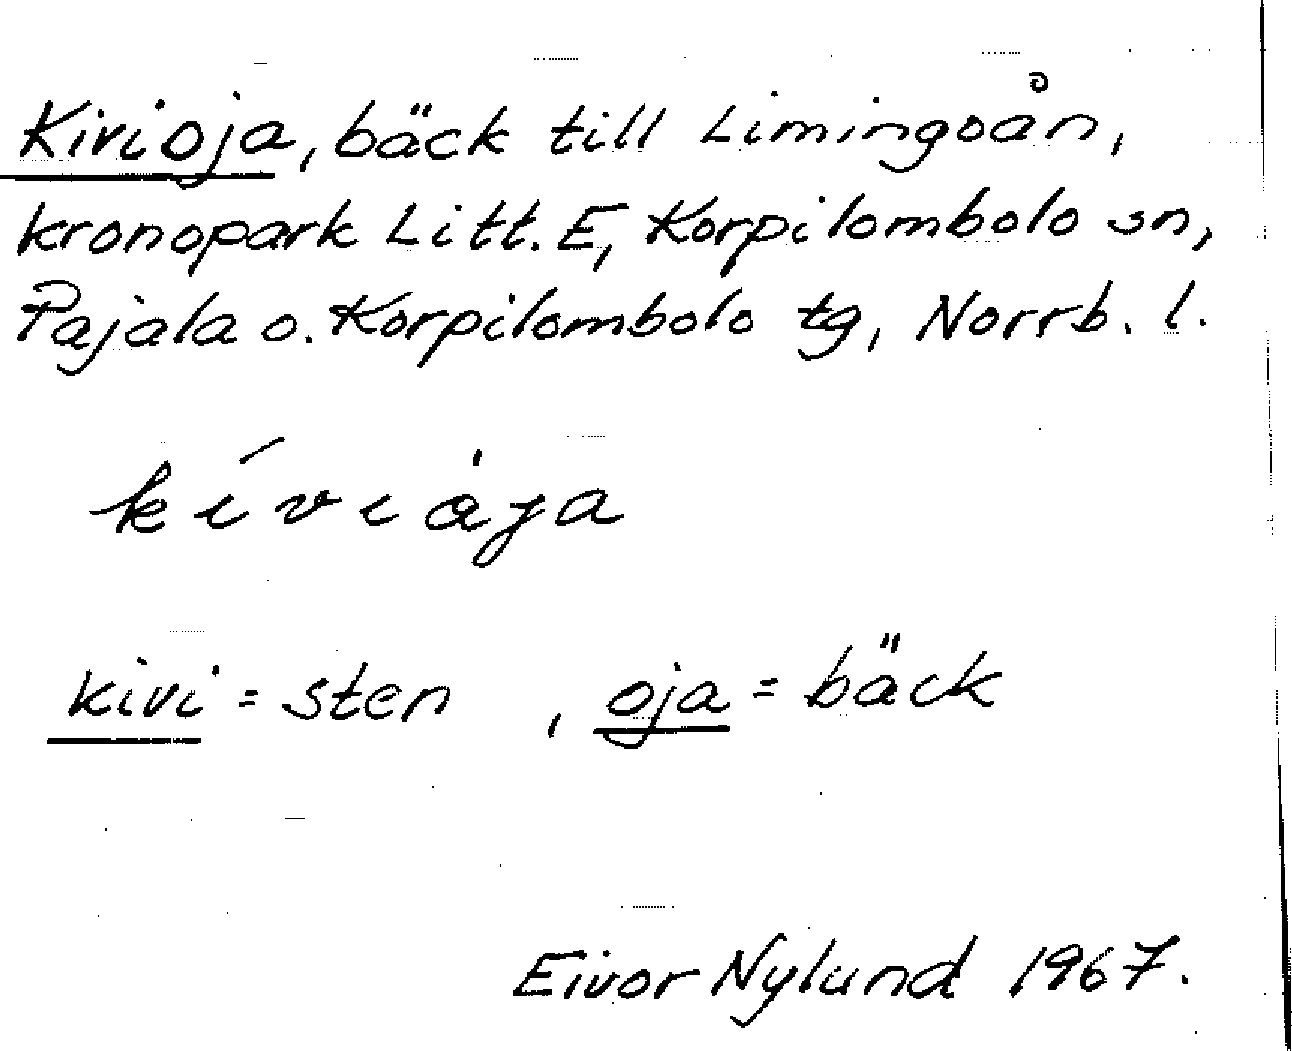 Kivioja, bäck till Limingoån,
kronopark Litt. E, Korpilombolo sn,
Pajala o. Korpilombolo tg, Norrb. l.
kíviåja
kivi = sten , oja = bäck
Eivor Nylund 1967.